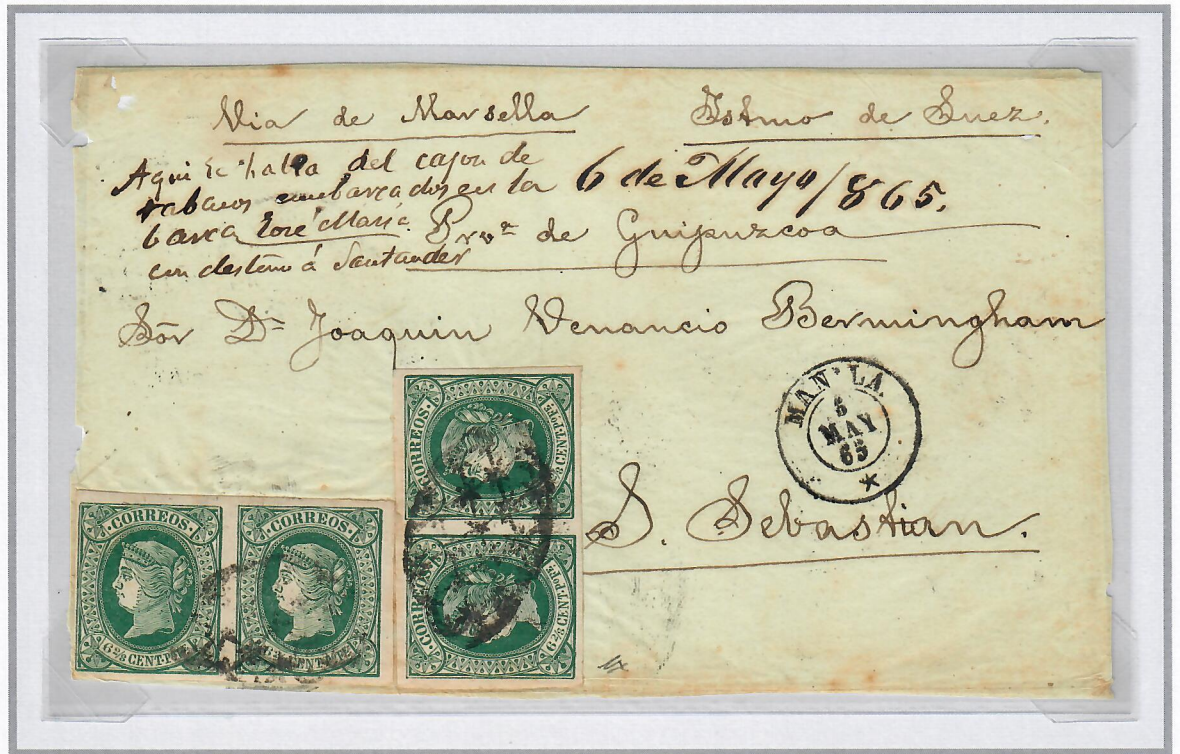 Via de Marsella Istmo de Suez.
Aqui se habla del cajon de
tabacos embarcados en la
barca José Maria
con destino á Santander
6 de Mayo/865.
Prov.ª de Guipuzcoa
Sör Dn Joaquin Venancio Bermingham
MANILA.
5
MAY
65
S. Sebastian.
CORREOS
6 2/8 CENT. P
CORREOS
CENT. P
CORREOS
CENT. POR F.
CORREOS
6 2/8 CENT. POR F.